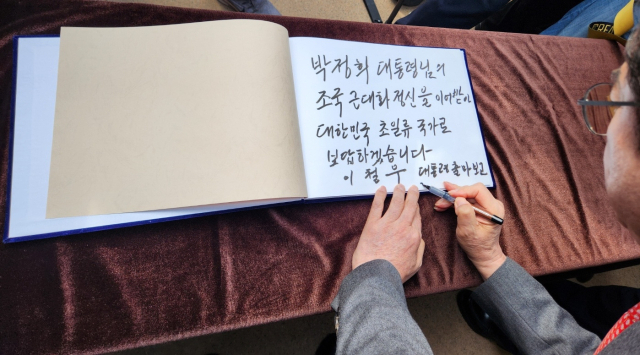 박정희 대통령님의
조국 근대화 정신을 이어받아
대한민국 초일류 국가로
보답하겠습니다
이 철 우 대통령 출마 보고